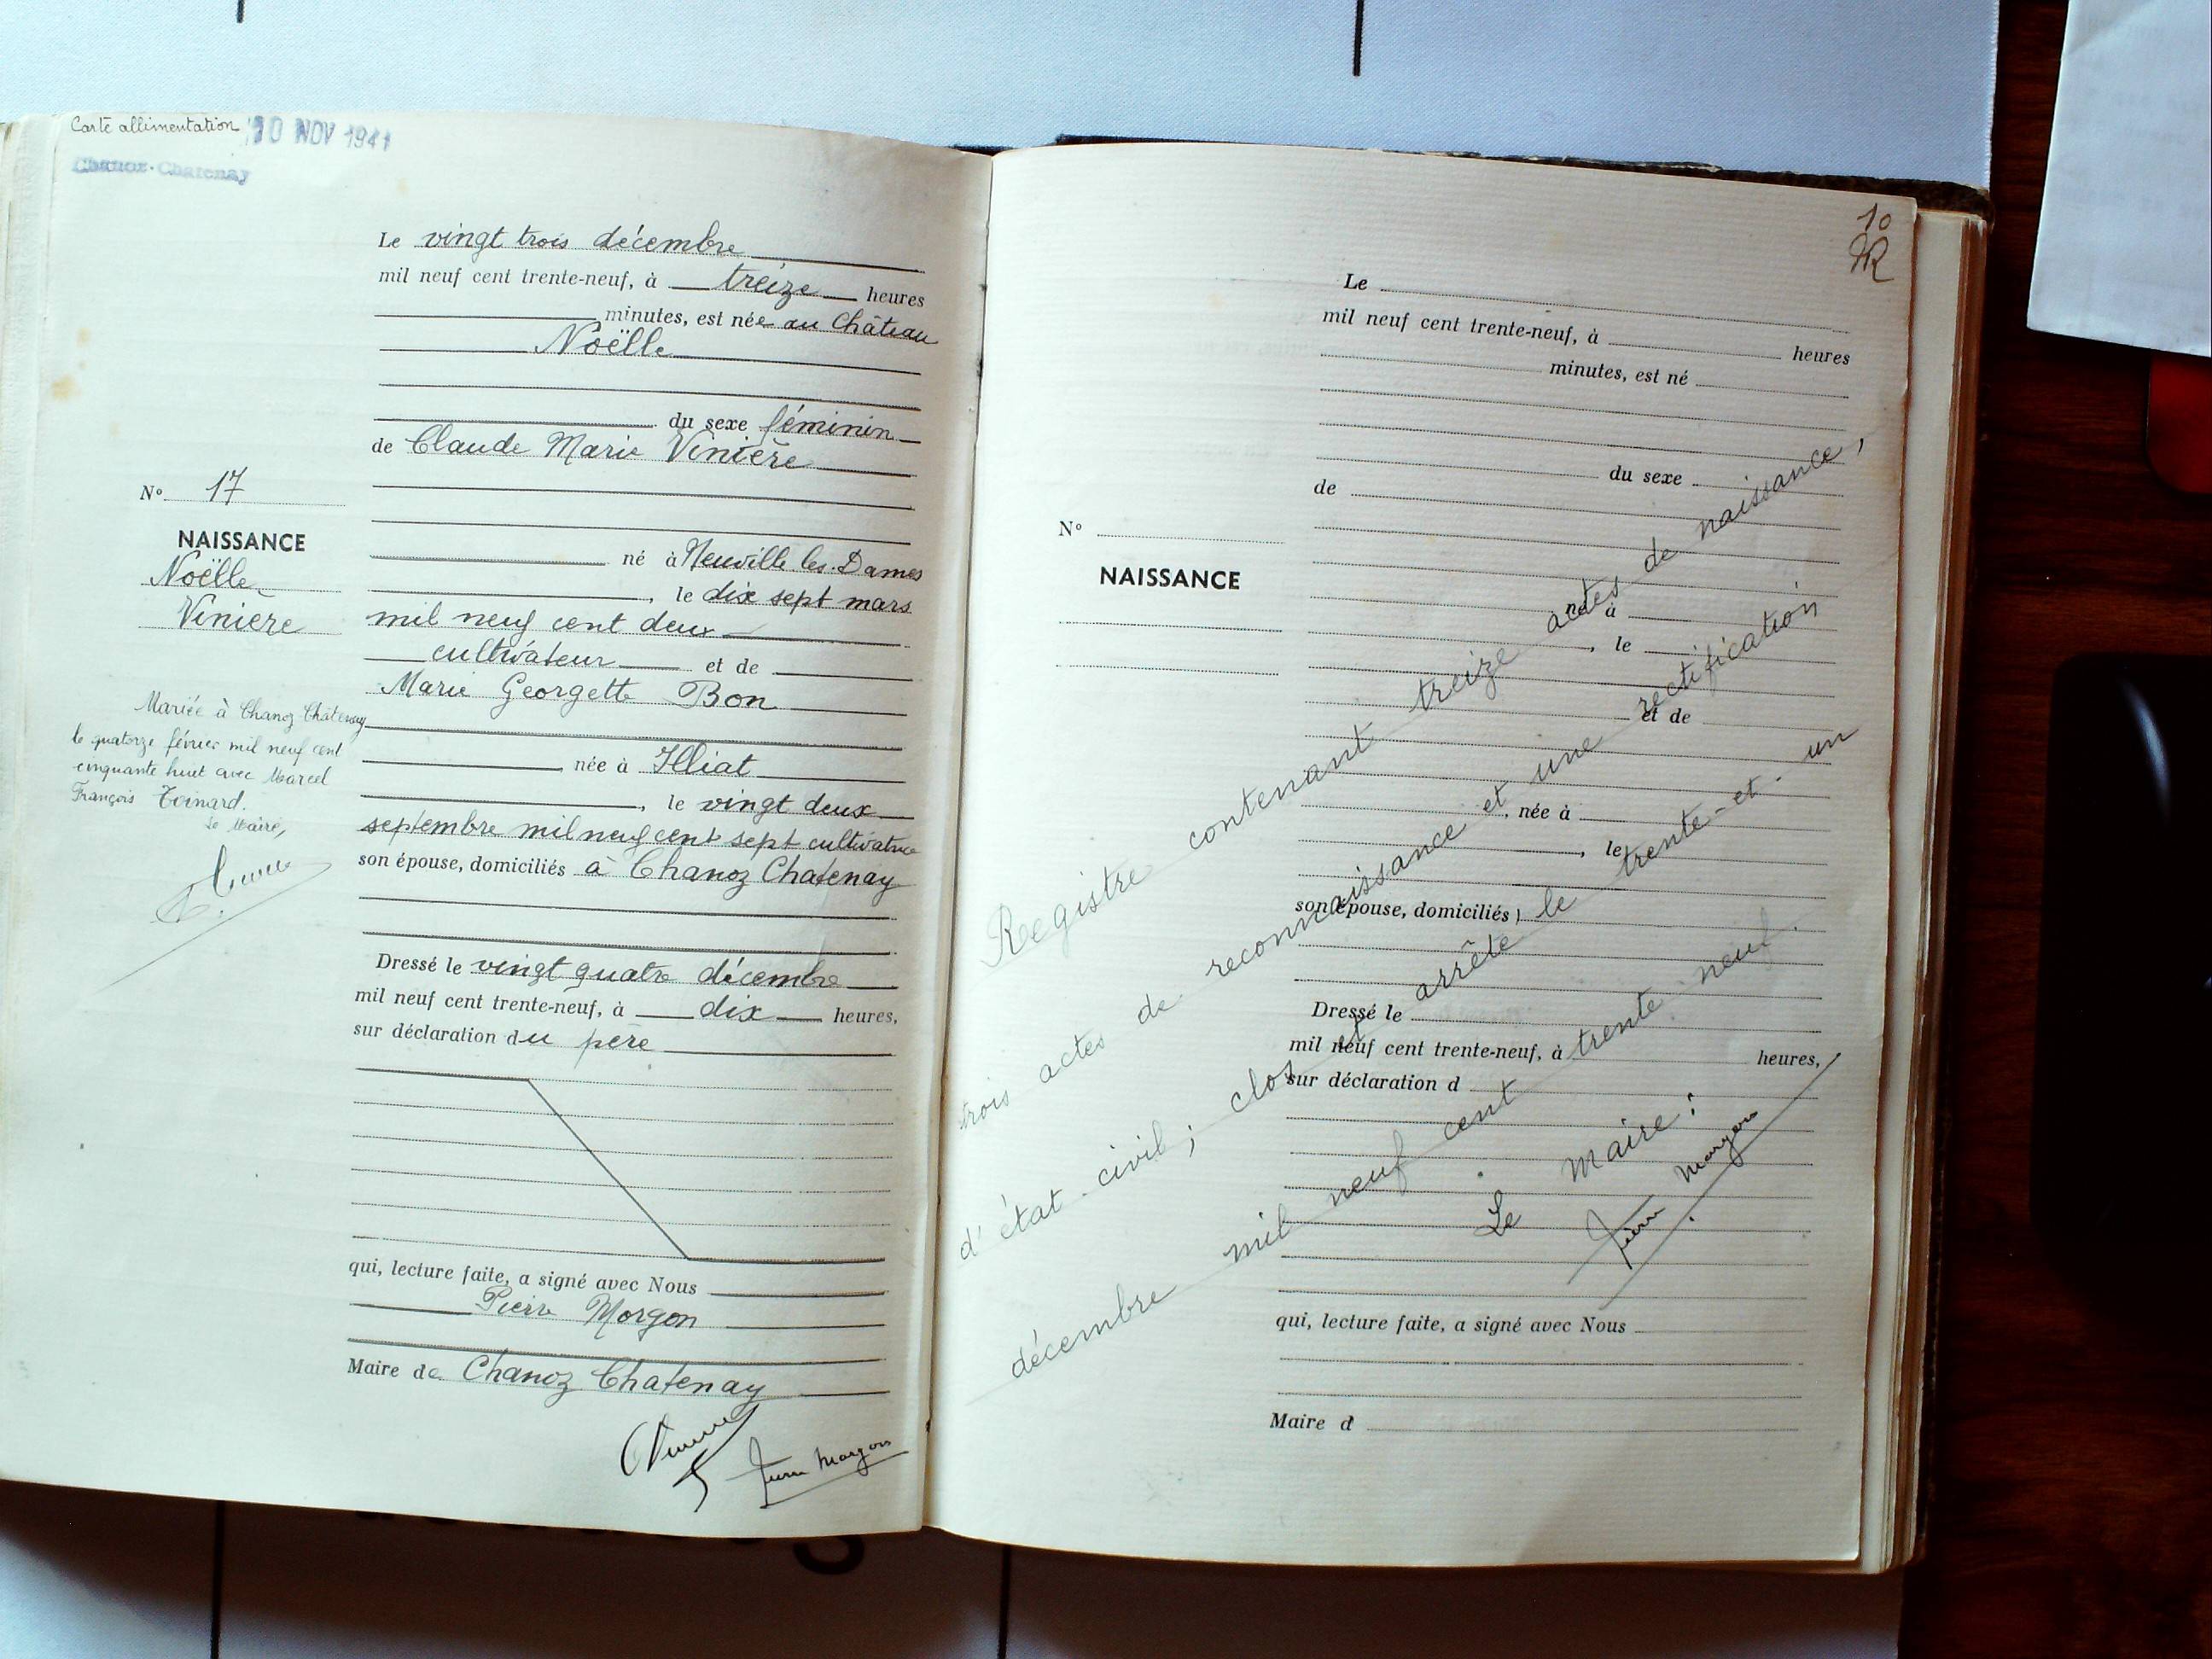 Carte allimentation 10 NOV 1941
Chanoz-Chatenay
Le vingt trois décembre
mil neuf cent trente-neuf, à treize heures
minutes, est née au Château
Noëlle
du sexe féminin
de Claude Marie Vinière
N° 17
NAISSANCE
Noëlle
Vinière
né à Neuville les Dames
, le dix sept mars
mil neuf cent deux
cultivateur et de
Marie Georgette Bon
Mariée à Chanoz Châtenay
le quatorze février mil neuf cent
cinquante huit avec Marcel
François Toinard.
Le Maire,
née à Illiat
, le vingt deux
septembre mil neuf cent sept cultivatrice
son épouse, domiciliés à Chanoz Chatenay
Dressé le vingt quatre décembre
mil neuf cent trente-neuf, à dix heures,
sur déclaration du père
qui, lecture faite, a signé avec Nous
Pierre Morgon
Maire de Chanoz Chatenay
Pierre Morgon
10
Le
mil neuf cent trente-neuf, à heures
minutes, est né
du sexe
de
N°
NAISSANCE
né à
, le
et de
, née à
, le
son épouse, domiciliés
Dressé le
mil neuf cent trente-neuf, à heures,
sur déclaration d
qui, lecture faite, a signé avec Nous
Maire d
Registre contenant treize actes de naissance,
trois actes de reconnaissance et une rectification
d'état-civil; clos et arrêté le trente-et-un
décembre mil neuf cent trente-neuf.
Le Maire:
Pierre Morgon